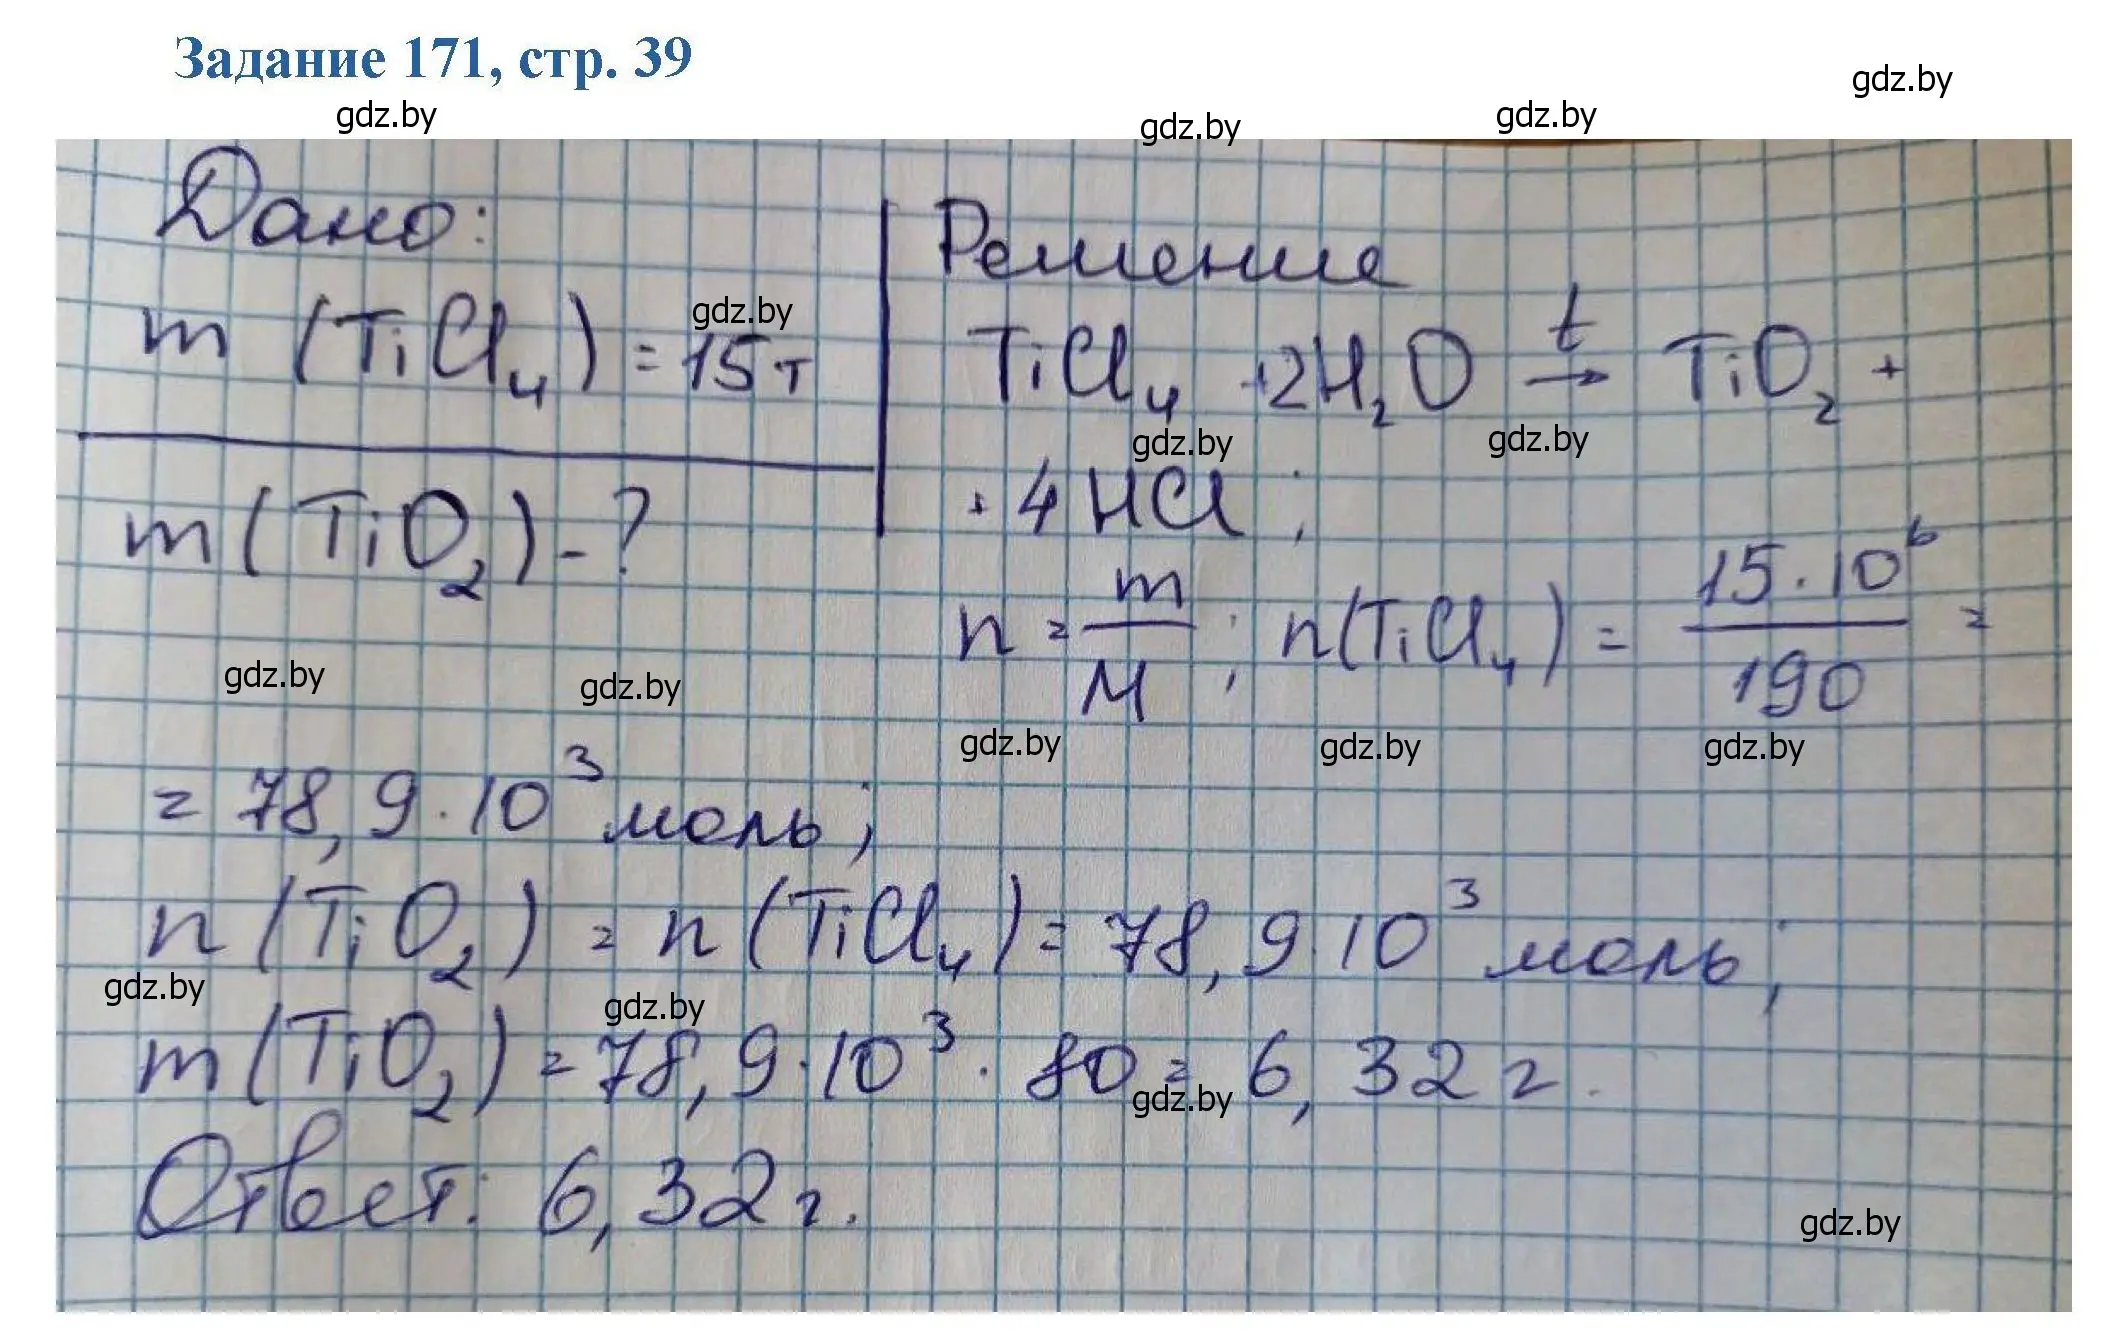 Задание 171, стр. 39
gdz.by
gdz.by
gdz.by
gdz.by
Дано:
m (TiCl₄) = 15 т
gdz.by
m (TiO₂) - ?
Решение
TiCl₄ + 2H₂O →ᵗ TiO₂ +
gdz.by
gdz.by
+ 4HCl ;
n = m/M ; n(TiCl₄) = 15·10⁶/190 =
gdz.by
gdz.by
gdz.by
gdz.by
gdz.by
= 78,9·10³ моль;
n (TiO₂) = n (TiCl₄) = 78,9·10³ моль;
gdz.by
gdz.by
m (TiO₂) = 78,9·10³ · 80 = 6,32 г.
gdz.by
Ответ: 6,32 г.
gdz.by